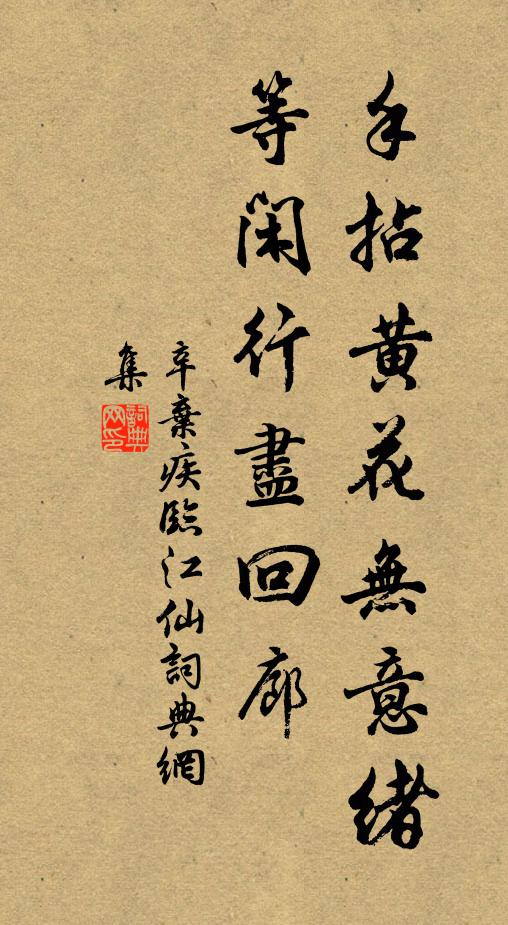 手拈黃花無意緒
等閑行盡回廊
辛棄疾臨江仙詞典網
集
詞典網印